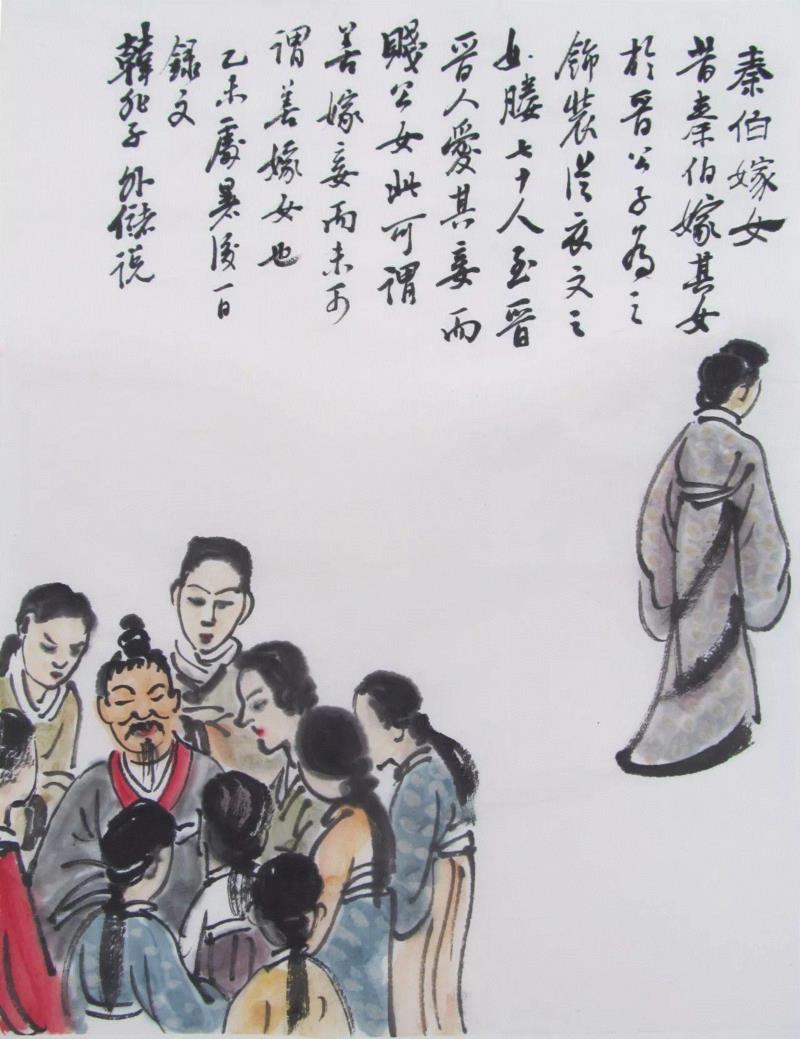 秦伯嫁女
昔秦伯嫁其女
於晋公子为之
飾裝從衣文之
女媵七十人至晋
晋人愛其妾而
賤公女此可謂
善嫁妾而未可
謂善嫁女也
乙未處暑後一日
録文
韓非子外儲说